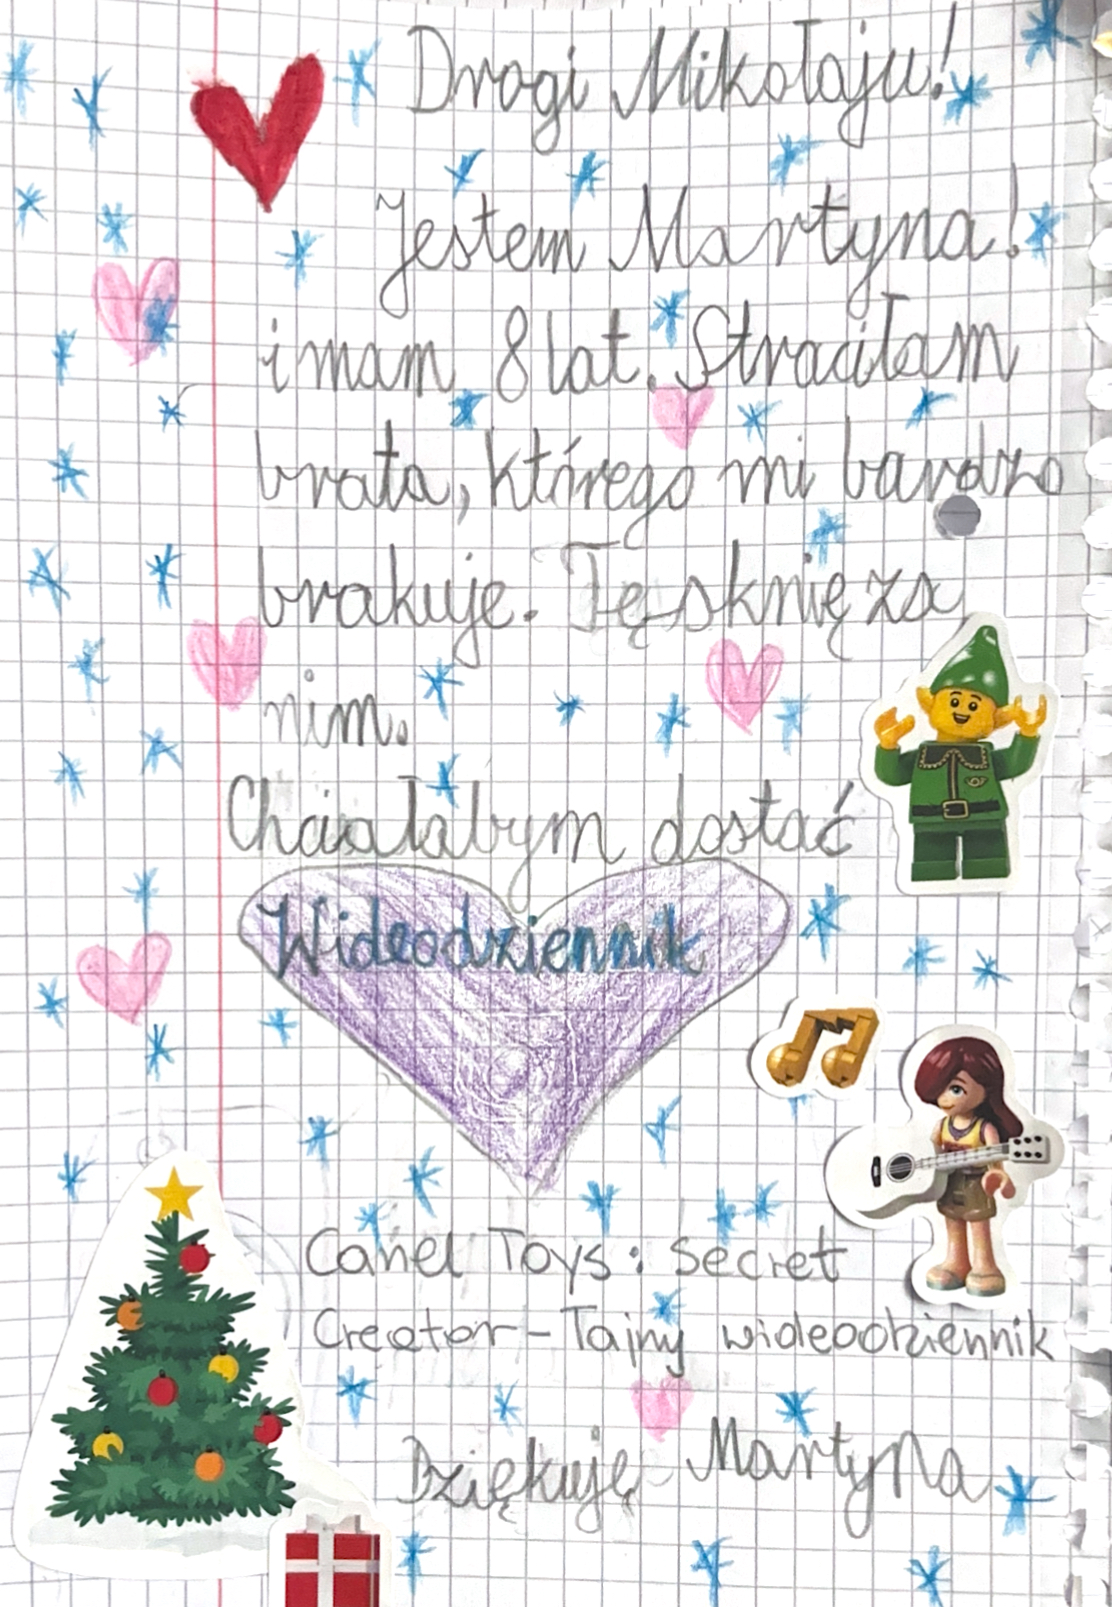 Drogi Mikołaju!
Jestem Martyna!
i mam 8 lat. Straciłam
brata, którego mi bardzo
brakuje. Tęsknię za
nim.
Chciałabym dostać
Wideodziennik
Canel Toys: Secret
Creator - Tajny wideodziennik
Dziękuję Martyna